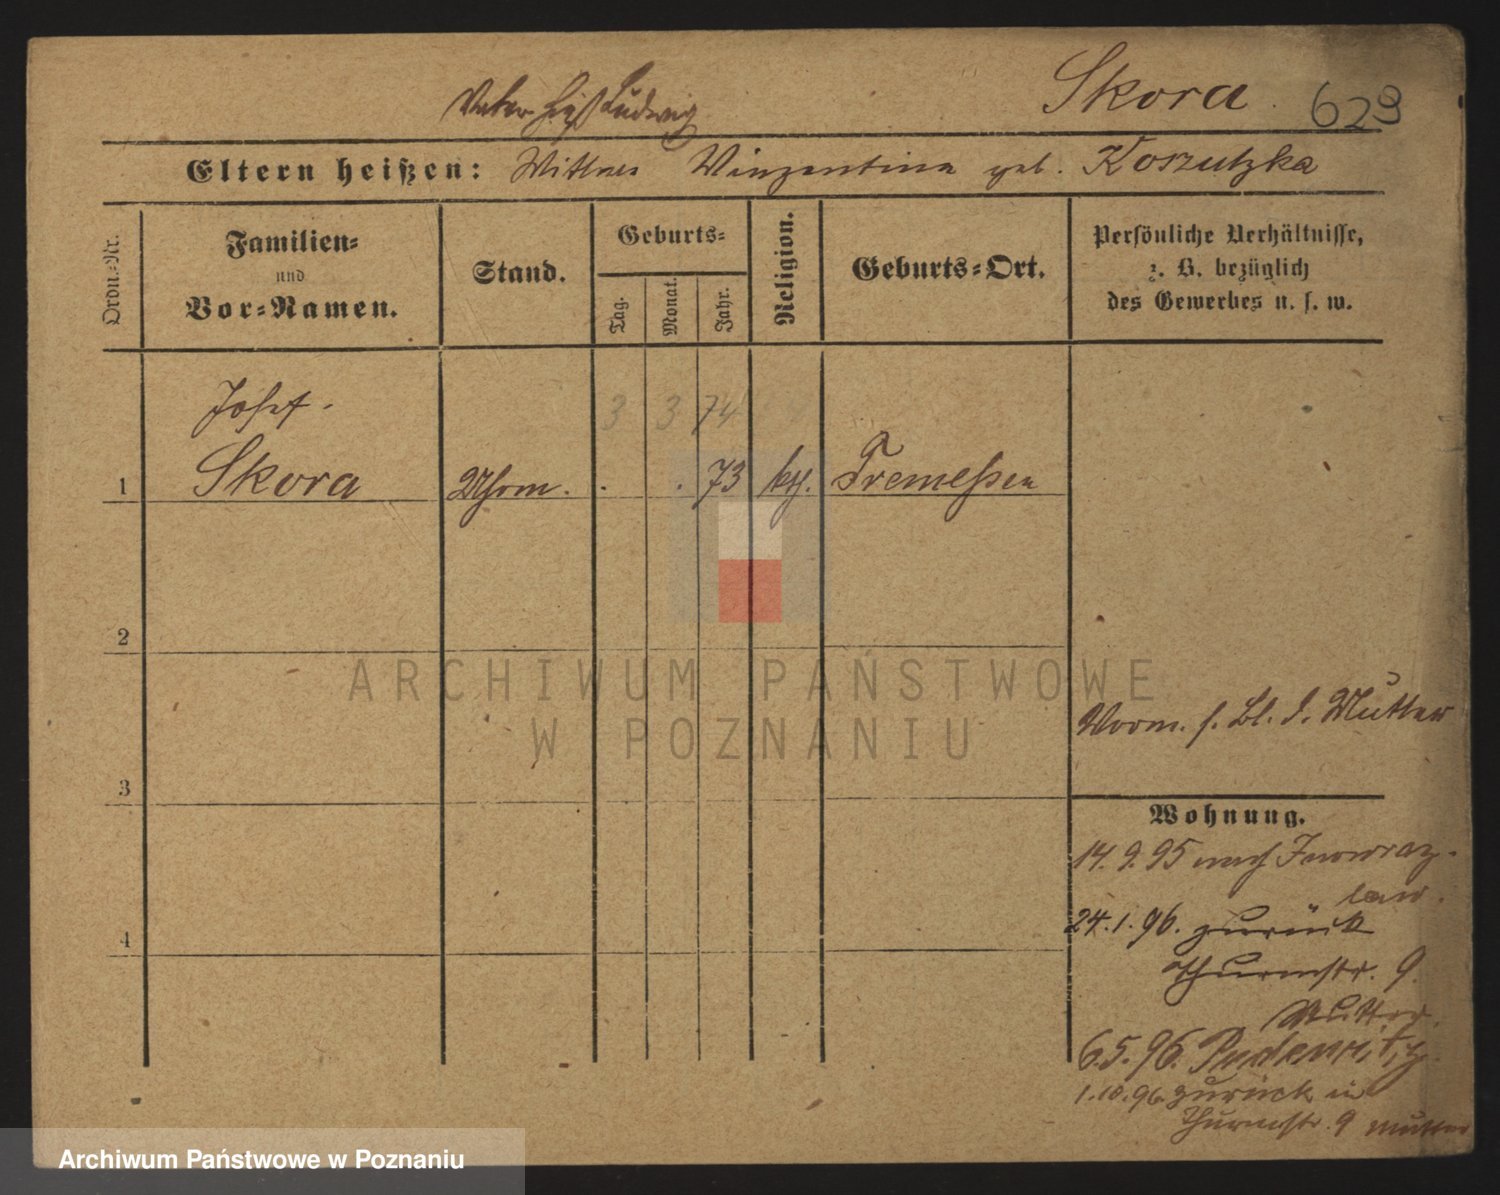 Skora. 629
Vater hieß Ludwig
Eltern heißen: Wittwe Vinzentina geb. Koszutzka
Ordn.-Nr.
Familien-
und
Vor-Namen.
Stand.
Geburts-
Tag.
Monat.
Jahr.
Religion.
Geburts-Ort.
Persönliche Verhältnisse,
z. B. bezüglich
des Gewerbes u. s. w.
Josef.
3 3 74
1 Skora . . 73 kth. Tremeßen
2
3
4
Vorm. s. Bl. d. Mutter
Wohnung.
14.9.95 nach Inowraz-
law.
24.1.96. zurück
Thurmstr. 9
Mutter.
6.5.96. Pudewitz.
1.10.96 zurück in
Thurmstr. 9 Mutter
ARCHIWUM PAŃSTWOWE
W POZNANIU
Archiwum Państwowe w Poznaniu